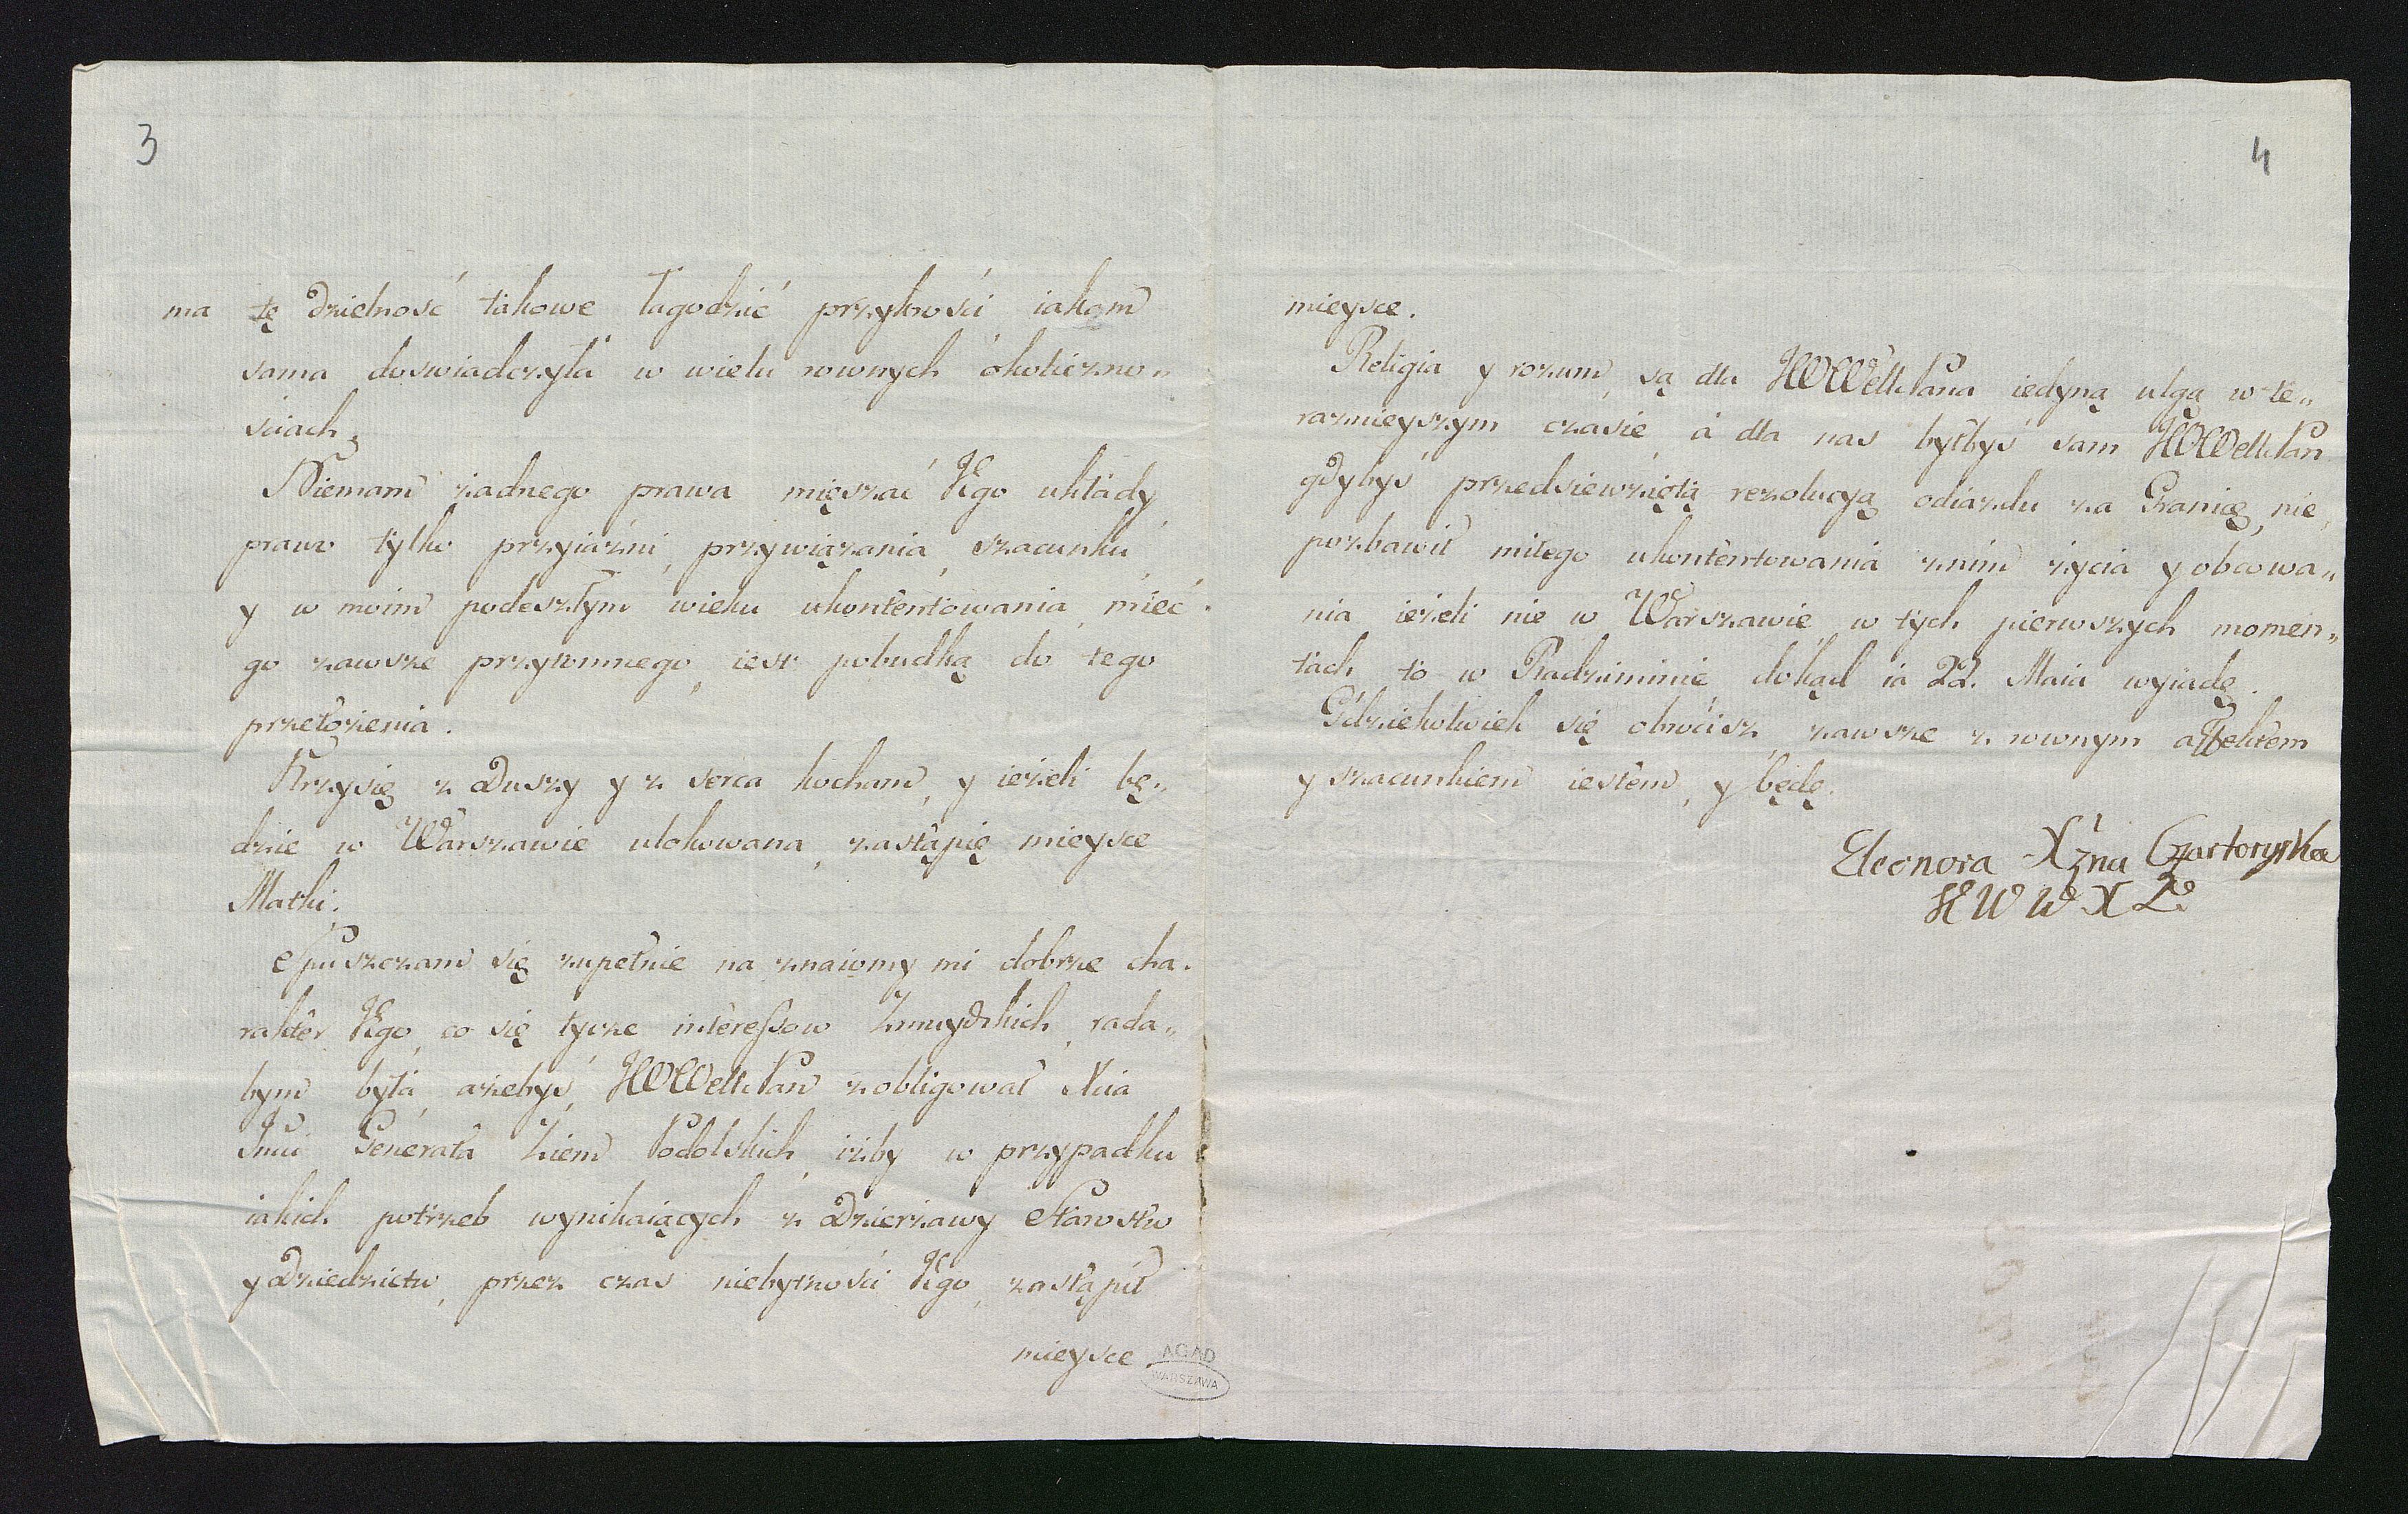 3
ma tę Dzielność takowe łagodzić przykrości iakom
sama doswiadczyła w wielu rownych okoliczno„
ściach.
Niemam żadnego prawa mięszać JEgo układy,
prawo tylko przyiaźni, przywiązania, szacunku,
y w moim podeszłym wieku ukontentowania, mieć
go zawsze przytomnego, iest pobudką do tego
przełożenia.
Krzysię z Duszy y z serca kocham, y ieżeli bę„
dzie w Warszawie ulokowana, zastąpię mieysce
Matki.
Spuszczam się zupełnie na znaiomy mi dobrze cha„
rakter JEgo, co się tycze interessow Zmuydzkich, rada„
bym była, ażebyś JWWell Pan zobligował Xcia
Jmci Generała Ziem Podolskich, iżby w przypadku
iakich potrzeb wynikaiących z Dzierżawy Starostw
y Dziedzictw, przez czas niebytności JEgo, zastąpił
mieysce
AGAD
WARSZAWA
4
mieysce.
Religia y rozum, są dla JWWell Pana iedyną ulgą w te„
raznieyszym czasie, á dla nas byłbyś sam JWWell Pan
gdybyś przedsiewziętą rezolucyą odiazdu za Granicę, nie
pozbawił miłego ukontentowania z nim życia y obcowa„
nia ieżeli nie w Warszawie, w tych pierwszych momen„
tach, to w Radziminie, dokąd ia 22. Maia wyiadę.
Gdziekolwiek się obrócisz, zawsze z rownym affektem
y szacunkiem iestem, y będę.
Eleonora Xżna Czartoryska
K W W X L